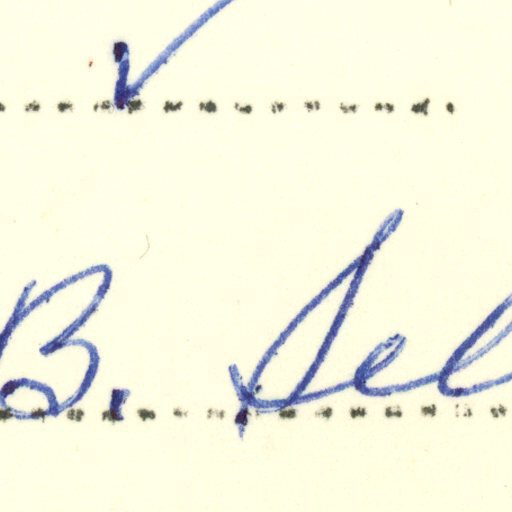 B. Sel